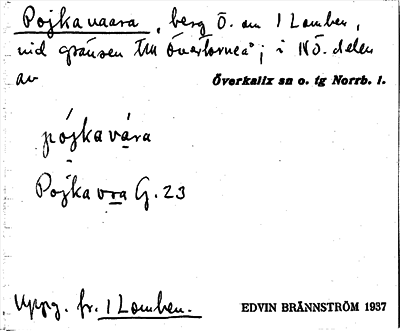 Pojkavaara, berg Ö. om 1 Lomben,
vid gränsen till Övertorneå; i NÖ. delen
av Överkalix sn o. tg Norrb. l.
pójkavára
Pojkavra G. 23
Uppg. fr. 1 Lomben. EDVIN BRÄNNSTRÖM 1937